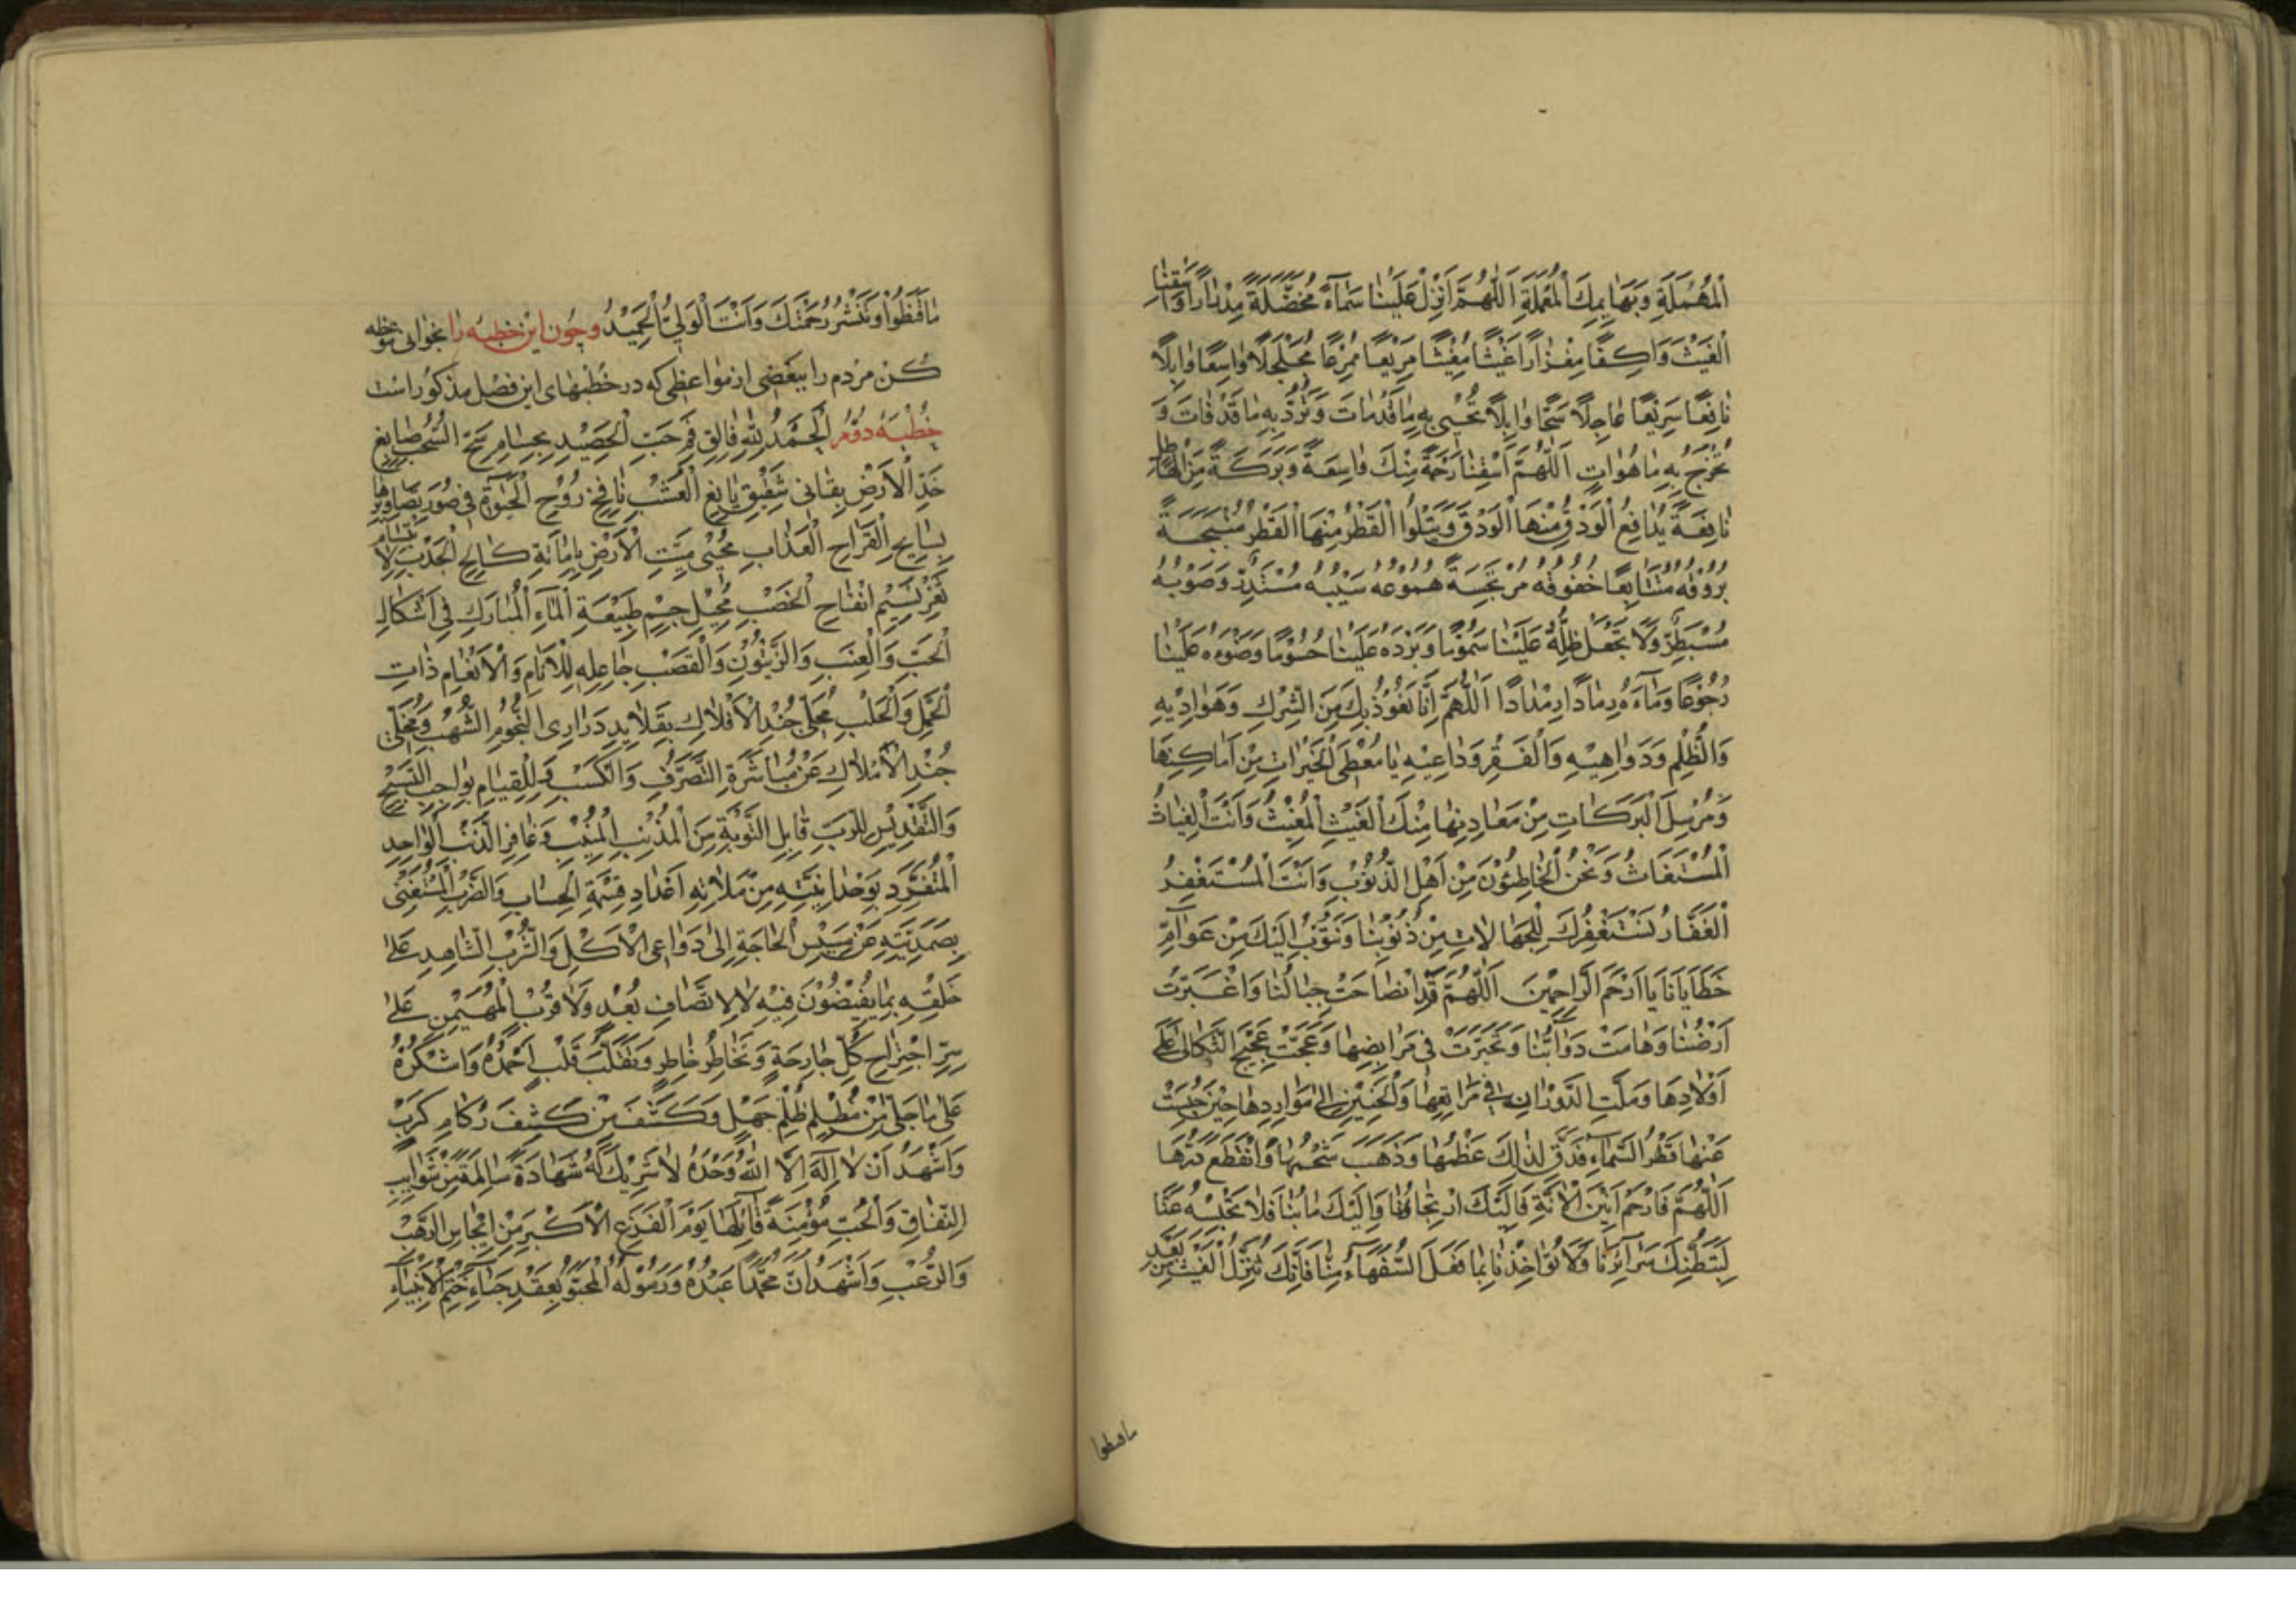 الْمُهْمَلَةِ وَبَهَايِمِكَ الْمُعْمَلَةِ اَللّٰهُمَّ اَنْزِلْ عَلَيْنٰا سَمٰاءً مُخْضَلَّةً مِدْرٰاراً وَاسْقِنَا
الْغَيْثَ وَاكِفًا مِغْزٰاراً غَيْثًا مُغِيْثًا مَرِيْعًا مُمْرِعًا مُجَلْجَلًا وٰاسِعًا وٰابِلًا
نٰافِعًا سَرِيْعًا عٰاجِلًا سَحًّا وٰابِلًا تُحْيِى بِهِ مٰا قَدْ مٰاتَ وَتَرُدُّ بِهِ مٰا قَدْ فٰاتَ وَ
تُخْرِجُ بِهِ مٰا هُوَ اٰتٍ اَللّٰهُمَّ اسْقِنٰا رَحْمَةً مِنْكَ وٰاسِعَةً وَبَرَكَةً مِنَ الْهٰاطِلِ
نٰافِعَةً يُدٰافِعُ الْوَدْقُ مِنْهَا الْوَدْقَ وَيَتْلُوا الْقَطْرُ مِنْهَا الْقَطْرَ مُنْبَجِسَةً
بُرُوْقُهُ مُتَتٰابِعًا خُفُوْقُهُ مُرْتَجِسَةً هُمُوْعُهُ سَيْبُهُ مُسْتَدِرٌّ وَصَوْبُهُ
مُسْبَطِرٌّ وَلٰا تَجْعَلْ ظِلَّهُ عَلَيْنٰا سَمُوْمًا وَبَرْدَهُ عَلَيْنٰا حُسُوْمًا وَضَوْءَهُ عَلَيْنٰا
رُجُوْمًا وَمٰآءَهُ رِمٰادًا رِمْدَادًا اَللّٰهُمَّ اِنّٰا نَعُوْذُ بِكَ مِنَ الشِّرْكِ وَهَوٰادِيْهِ
وَالظُّلْمِ وَدَوٰاهِيْهِ وَالْفَقْرِ وَدٰاعِيْهِ يٰا مُعْطِىَ الْخَيْرٰاتِ مِنْ اَمٰاكِنِهٰا
وَمُرْسِلَ الْبَرَكٰاتِ مِنْ مَعٰادِنِهٰا مِنْكَ الْغَيْثُ الْمُغِيْثُ وَاَنْتَ الْغِيٰاثُ
الْمُسْتَغٰاثُ وَنَحْنُ الْخٰاطِئُوْنَ مِنْ اَهْلِ الذُّنُوْبِ وَاَنْتَ الْمُسْتَغْفِرُ
الْغَفّٰارُ نَسْتَغْفِرُكَ لِلْجَهٰالٰاتِ مِنْ ذُنُوْبِنٰا وَنَتُوْبُ اِلَيْكَ مِنْ عَوٰامِّ
خَطٰايٰانَا يٰا اَرْحَمَ الرّٰاحِمِيْنَ اَللّٰهُمَّ قَدِ انْصٰاحَتْ جِبٰالُنٰا وَاغْبَرَّتْ
اَرْضُنٰا وَهٰامَتْ دَوٰابُّنٰا وَتَحَيَّرَتْ فِى مَرٰابِضِهٰا وَعَجَّتْ عَجِيْجَ الثَّكٰالٰى عَلٰى
اَوْلٰادِهٰا وَمَلَّتِ الدَّوَرٰانَ فِى مَرٰاتِعِهٰا وَالْحَنِيْنَ اِلٰى مَوٰارِدِهٰا حِيْنَ حُبِسَتْ
عَنْهٰا قَطْرُ السَّمٰآءِ فَدَقَّ لِذٰلِكَ عَظْمُهٰا وَذَهَبَ شَحْمُهٰا وَانْقَطَعَ دَرُّهٰا
اَللّٰهُمَّ فَارْحَمْ اَنِيْنَ الْاٰنَّةِ فَاِلَيْكَ ارْتِجٰاؤُنٰا وَاِلَيْكَ مٰابُنٰا فَلٰا تَحْبِسْهُ عَنّٰا
لِتَبَطُّنِكَ سَرٰآئِرَنٰا وَلٰا تُؤٰاخِذْنٰا بِمٰا فَعَلَ السُّفَهٰآءُ مِنّٰا فَاِنَّكَ تُنَزِّلُ الْغَيْثَ مِنْ بَعْدِ
ماقنطوا
مٰا قَنَطُوْا وَتَنْشُرُ رَحْمَتَكَ وَاَنْتَ الْوَلِىُّ الْحَمِيْدُ وچون اين خطبه را بخوانى موعظه
كن مردم را ببعضى از مواعظى كه در خطبهاى اين فصل مذكور است
خطبه دوم اَلْحَمْدُ لِلّٰهِ فٰالِقِ قِمَرِ حَبِّ الْحَصِيْدِ بِحُسٰامِ سَحِّ السُّحُبِ صٰابِغِ
خَدِّ الْاَرْضِ بِقٰانِى شَقِيْقِ يٰانِعِ الْعُشْبِ نٰافِخِ رُوْحِ الْحَيٰوةِ فِى صُوَرِ تَصٰاوِيْرِهٰا
بِسٰايِحِ الْقَرٰاحِ الْعَذٰابِ مُحْيِى مَيِّتِ الْاَرْضِ بِاِمٰاتَةِ كٰالِحِ الْجَدْبِ لِابْتِسٰامِ
ثَغْرِ نَسِيْمِ انْفِتٰاحِ الْخَصْبِ مُحِيْلِ جِسْمِ طَبِيْعَةِ الْمٰآءِ الْمُبٰارَكِ فِى اَشْكٰالِ
الْحَبِّ وَالْعِنَبِ وَالزَّيْتُوْنِ وَالْقَصَبِ جٰاعِلِهِ لِلْاَنٰامِ وَالْاَنْعٰامِ ذٰاتِ
الْحَمْلِ وَالْحَلْبِ مُحَلِّى جُنْدِ الْاَفْلٰاكِ بِقَلٰايِدِ دَرٰارِى النُّجُوْمِ الشُّهُبِ وَمُخَلِّى
جُنْدِ الْاَمْلٰاكِ عَنْ مُبٰاشَرَةِ التَّصَرُّفِ وَالْكَسْبِ لِلْقِيٰامِ بِوٰاجِبِ التَّسْبِيْحِ
وَالتَّقْدِيْسِ لِلرَّبِّ قٰابِلِ التَّوْبَةِ مِنَ الْمُذْنِبِ الْمُنِيْبِ وَغٰافِرِ الذَّنْبِ الْوٰاحِدِ
الْمُتَفَرِّدِ بِوَحْدٰانِيَّتِهِ مِنْ مُلٰاتِهِ اَعْدٰادِ قِسْمَةِ الْحِسٰابِ وَالضَّرْبِ الْمُسْتَغْنِى
بِصَمَدِيَّتِهِ عَنْ مَسِيْسِ الْحٰاجَةِ اِلٰى دَوٰاعِى الْاَكْلِ وَالشُّرْبِ الشّٰاهِدِ عَلٰى
خَلْقِهِ بِمٰا يُفِيْضُوْنَ فِيْهِ لٰا لِاتِّصٰافِ بُعْدٍ وَلٰا قُرْبٍ الْمُهَيْمِنِ عَلٰى
سِرِّ اجْتِرٰاحِ كُلِّ جٰارِحَةٍ وَتَخٰاطُرِ خٰاطِرٍ وَتَقَلُّبِ قَلْبٍ اَحْمَدُهُ وَاَشْكُرُهُ
عَلٰى مٰا جَلّٰى مِنْ مُظْلِمِ ظُلَمِ جَهْلٍ وَكَشَفَ مِنْ كَثِيْفِ رُكٰامِ كَرْبٍ
وَاَشْهَدُ اَنْ لٰا اِلٰهَ اِلَّا اللّٰهُ وَحْدَهُ لٰا شَرِيْكَ لَهُ شَهٰادَةً سٰالِمَةً مِنْ شَوٰايِبِ
النِّفٰاقِ وَالْخِبِّ مُؤْمِنَةً قٰائِلَهٰا يَوْمَ الْفَزَعِ الْاَكْبَرِ مِنْ اِيْجٰاسِ الرَّهْبِ
وَالرُّعْبِ وَاَشْهَدُ اَنَّ مُحَمَّدًا عَبْدُهُ وَرَسُوْلُهُ الْمَحْبُوُّ بِعَقْدِ حِبٰاءِ خَتْمِ الْاَنْبِيٰاءِ